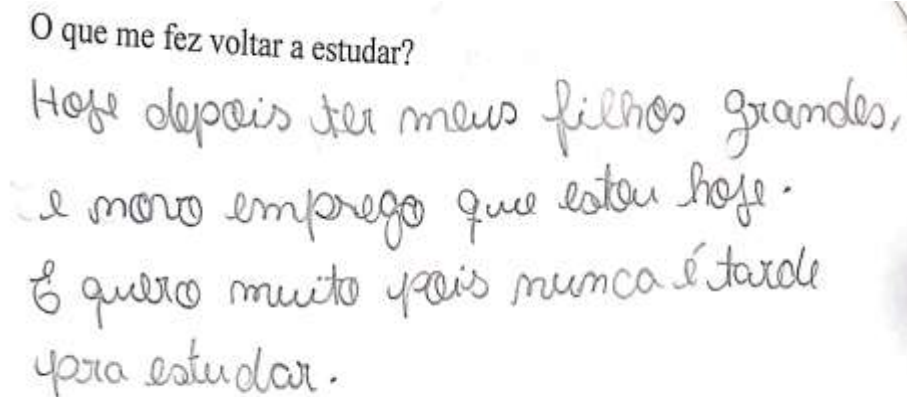 O que me fez voltar a estudar?
Hoje depois ter meus filhos grandes,
e novo emprego que estou hoje.
E quero muito pois nunca é tarde
pra estudar.